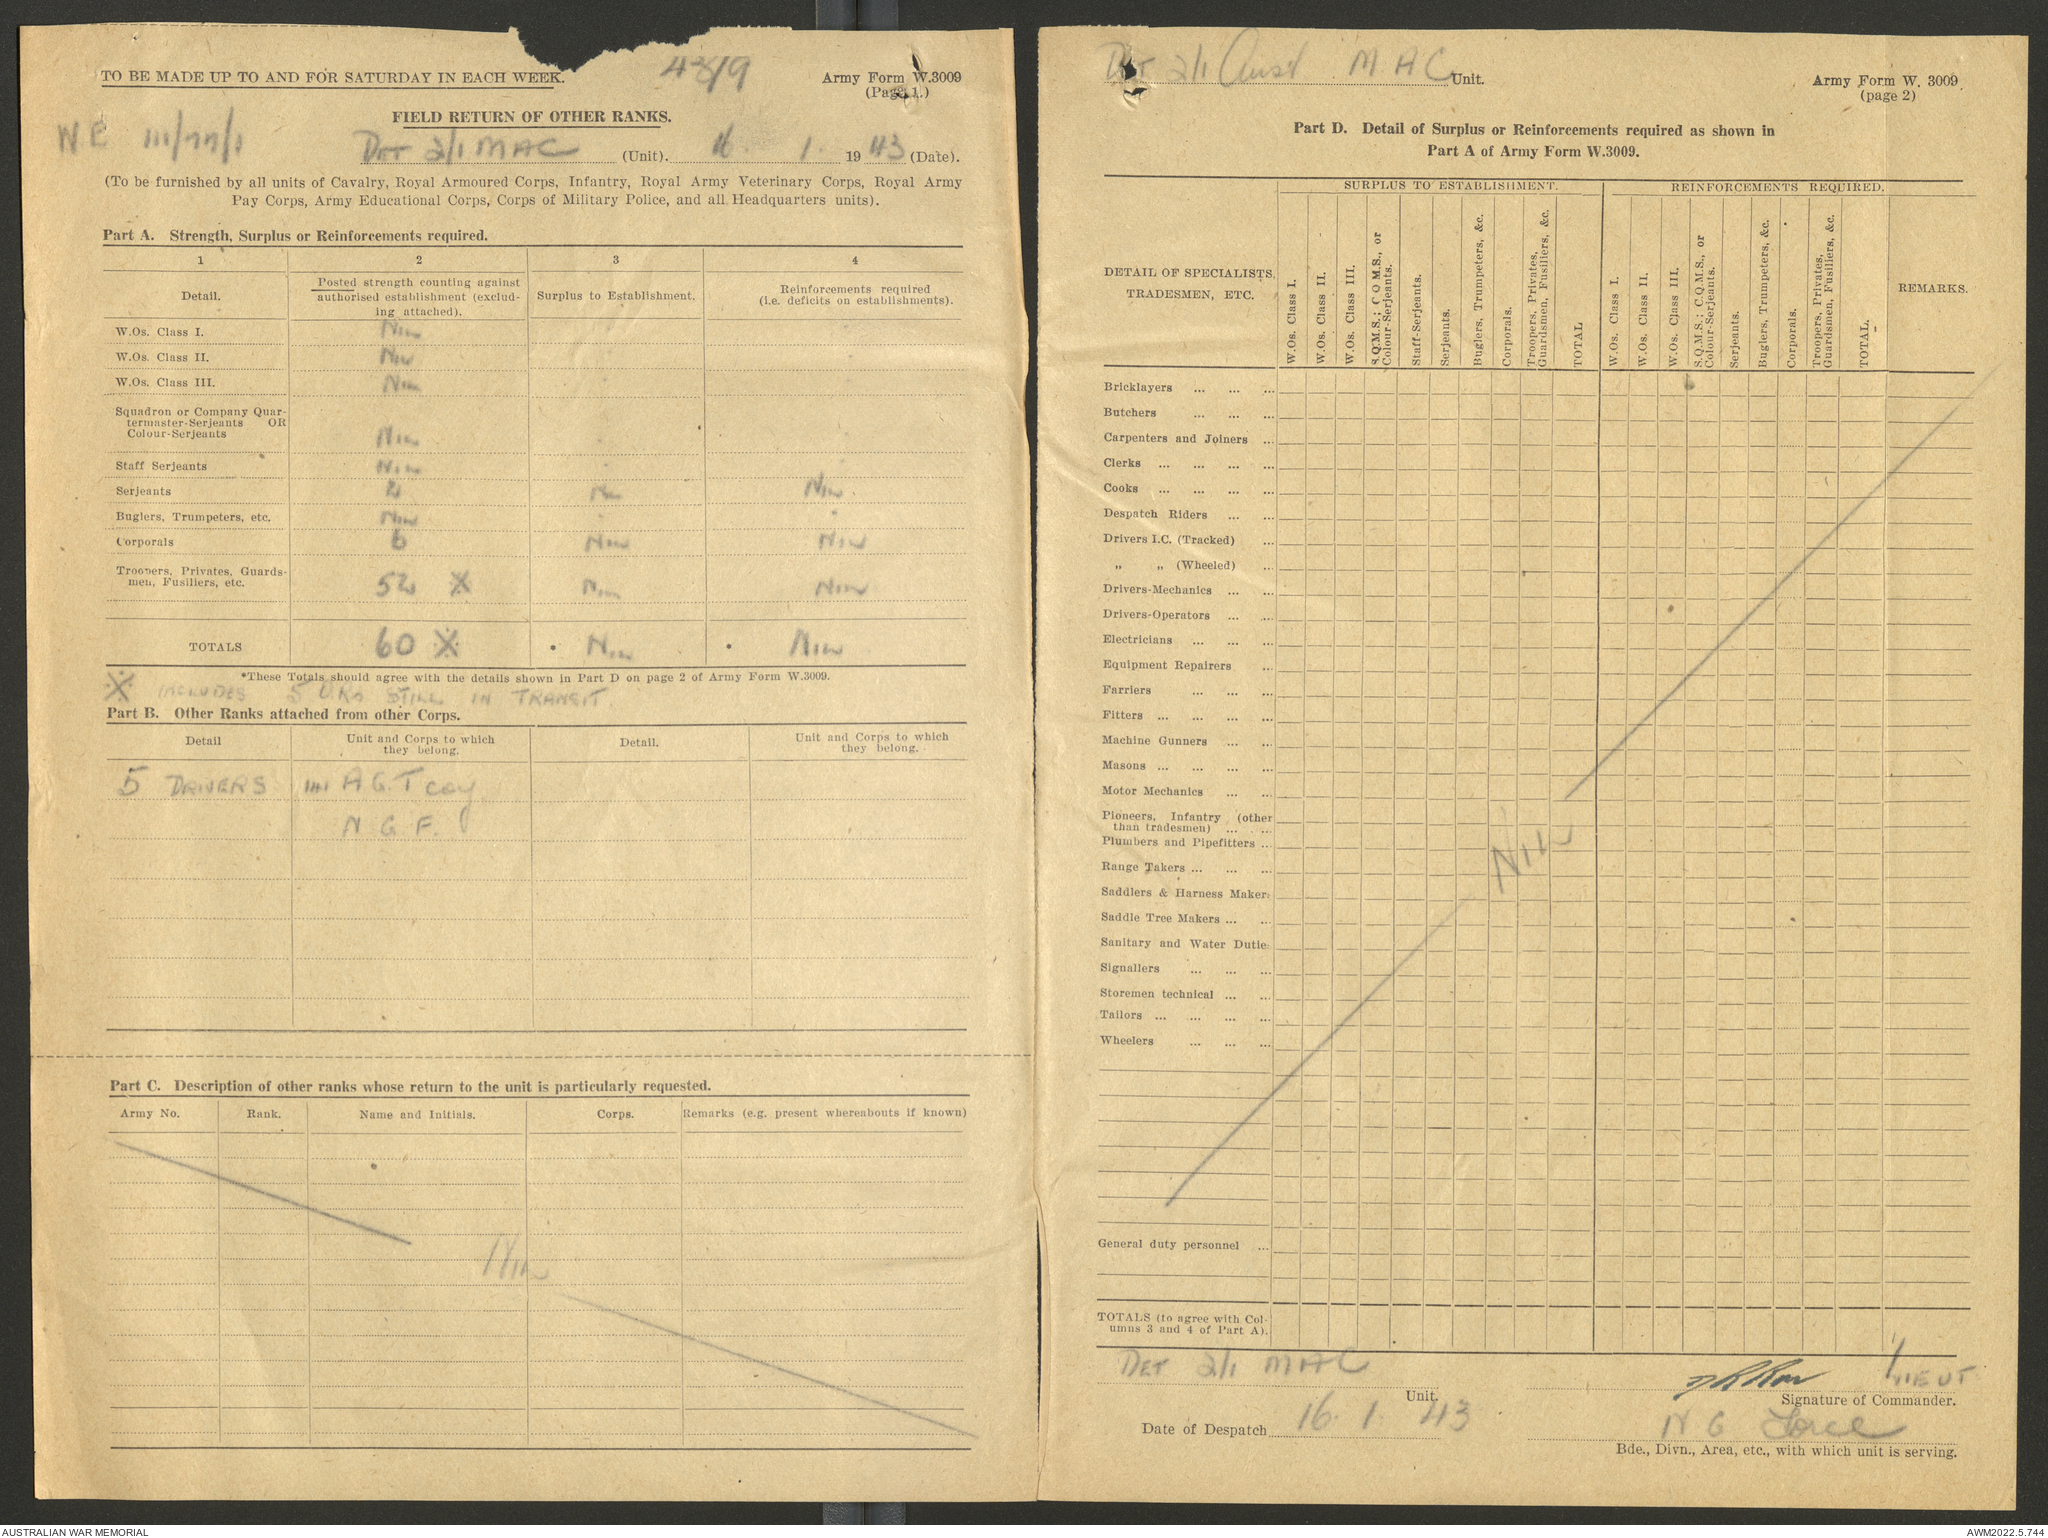 TO BE MADE UP TO AND FOR SATURDAY IN EACH WEEK.
43/9
Army Form W.3009
(Page 1.)
FIELD RETURN OF OTHER RANKS.
NE 111/77/1
DET 2/1 MAC (Unit). 16. 1. 1943 (Date).
(To be furnished by all units of Cavalry, Royal Armoured Corps, Infantry, Royal Army Veterinary Corps, Royal Army
Pay Corps, Army Educational Corps, Corps of Military Police, and all Headquarters units).
Part A. Strength, Surplus or Reinforcements required.
1 2 3 4
Detail.
Posted strength counting against
authorised establishment (exclud-
ing attached).
Surplus to Establishment.
Reinforcements required
(i.e. deficits on establishments).
W.Os. Class I. NIL
W.Os. Class II. NIL
W.Os. Class III. NIL
Squadron or Company Quar-
termaster-Serjeants OR
Colour-Serjeants NIL
Staff Serjeants NIL
Serjeants 2 NIL NIL
Buglers, Trumpeters, etc. NIL
Corporals 6 NIL NIL
Troopers, Privates, Guards-
men, Fusiliers, etc. 52 ※ NIL NIL
TOTALS 60 ※ • NIL • NIL
*These Totals should agree with the details shown in Part D on page 2 of Army Form W.3009.
※ INCLUDES 5 ORs STILL IN TRANSIT
Part B. Other Ranks attached from other Corps.
Detail
Unit and Corps to which
they belong.
Detail.
Unit and Corps to which
they belong.
5 DRIVERS AGT Coy
N G F.
Part C. Description of other ranks whose return to the unit is particularly requested.
Army No. Rank. Name and Initials. Corps. Remarks (e.g. present whereabouts if known)
NIL
DET 2/1 Aust MAC Unit.
Army Form W. 3009
(page 2)
Part D. Detail of Surplus or Reinforcements required as shown in
Part A of Army Form W.3009.
DETAIL OF SPECIALISTS,
TRADESMEN, ETC.
SURPLUS TO ESTABLISHMENT.
W.Os. Class I.
W.Os. Class II.
W.Os. Class III.
S.Q.M.S.; C.Q.M.S., or
Colour-Serjeants.
Staff-Serjeants.
Serjeants.
Buglers, Trumpeters, &c.
Corporals.
Troopers, Privates,
Guardsmen, Fusiliers, &c.
TOTAL
REINFORCEMENTS REQUIRED.
W.Os. Class I.
W.Os. Class II.
W.Os. Class III.
S.Q.M.S.; C.Q.M.S., or
Colour-Serjeants.
Serjeants.
Buglers, Trumpeters, &c.
Corporals.
Troopers, Privates,
Guardsmen, Fusiliers, &c.
TOTAL.
REMARKS.
Bricklayers ... ... ...
Butchers ... ... ...
Carpenters and Joiners ...
Clerks ... ... ... ...
Cooks ... ... ... ...
Despatch Riders ... ...
Drivers I.C. (Tracked) ...
„ „ (Wheeled) ...
Drivers-Mechanics ... ...
Drivers-Operators ... ...
Electricians ... ... ...
Equipment Repairers ...
Farriers ... ... ...
Fitters ... ... ... ...
Machine Gunners ... ...
Masons ... ... ... ...
Motor Mechanics ... ...
Pioneers, Infantry (other
than tradesmen) ... ...
Plumbers and Pipefitters ...
Range Takers ... ... ...
Saddlers & Harness Maker
Saddle Tree Makers ... ...
Sanitary and Water Dutie
Signallers ... ... ...
Storemen technical ... ...
Tailors ... ... ... ...
Wheelers ... ... ...
NIL
General duty personnel ...
TOTALS (to agree with Col-
umns 3 and 4 of Part A).
DET 2/1 MAC
Unit.
LIEUT
Signature of Commander.
Date of Despatch 16. 1. 43
N G Force
Bde., Divn., Area, etc., with which unit is serving.
AUSTRALIAN WAR MEMORIAL
AWM2022.5.744